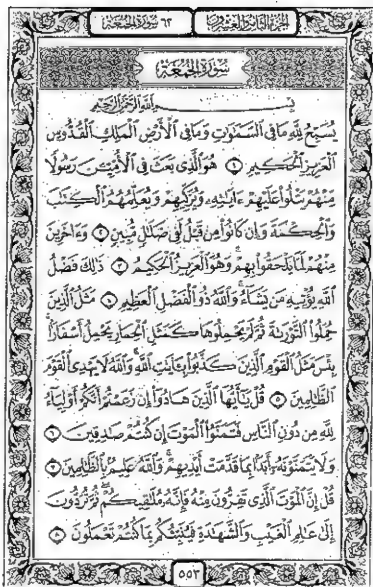 الجزء الثامن والعشرون
٦٢ سورة الجمعة
سُورَةُ الجُمُعَةِ
بِسْمِ اللَّهِ الرَّحْمَٰنِ الرَّحِيمِ
يُسَبِّحُ لِلَّهِ مَا فِي السَّمَاوَاتِ وَمَا فِي الْأَرْضِ الْمَلِكِ الْقُدُّوسِ
الْعَزِيزِ الْحَكِيمِ ١ هُوَ الَّذِي بَعَثَ فِي الْأُمِّيِّينَ رَسُولًا
مِّنْهُمْ يَتْلُوا عَلَيْهِمْ ءَايَاتِهِ وَيُزَكِّيهِمْ وَيُعَلِّمُهُمُ الْكِتَابَ
وَالْحِكْمَةَ وَإِن كَانُوا مِن قَبْلُ لَفِي ضَلَالٍ مُّبِينٍ ٢ وَءَاخَرِينَ
مِنْهُمْ لَمَّا يَلْحَقُوا بِهِمْ وَهُوَ الْعَزِيزُ الْحَكِيمُ ٣ ذَٰلِكَ فَضْلُ
اللَّهِ يُؤْتِيهِ مَن يَشَاءُ وَاللَّهُ ذُو الْفَضْلِ الْعَظِيمِ ٤ مَثَلُ الَّذِينَ
حُمِّلُوا التَّوْرَاةَ ثُمَّ لَمْ يَحْمِلُوهَا كَمَثَلِ الْحِمَارِ يَحْمِلُ أَسْفَارًا
بِئْسَ مَثَلُ الْقَوْمِ الَّذِينَ كَذَّبُوا بِآيَاتِ اللَّهِ وَاللَّهُ لَا يَهْدِي الْقَوْمَ
الظَّالِمِينَ ٥ قُلْ يَا أَيُّهَا الَّذِينَ هَادُوا إِن زَعَمْتُمْ أَنَّكُمْ أَوْلِيَاءُ
لِلَّهِ مِن دُونِ النَّاسِ فَتَمَنَّوُا الْمَوْتَ إِن كُنتُمْ صَادِقِينَ ٦
وَلَا يَتَمَنَّوْنَهُ أَبَدًا بِمَا قَدَّمَتْ أَيْدِيهِمْ وَاللَّهُ عَلِيمٌ بِالظَّالِمِينَ ٧
قُلْ إِنَّ الْمَوْتَ الَّذِي تَفِرُّونَ مِنْهُ فَإِنَّهُ مُلَاقِيكُمْ ثُمَّ تُرَدُّونَ
إِلَىٰ عَالِمِ الْغَيْبِ وَالشَّهَادَةِ فَيُنَبِّئُكُم بِمَا كُنتُمْ تَعْمَلُونَ ٨
٥٥٣